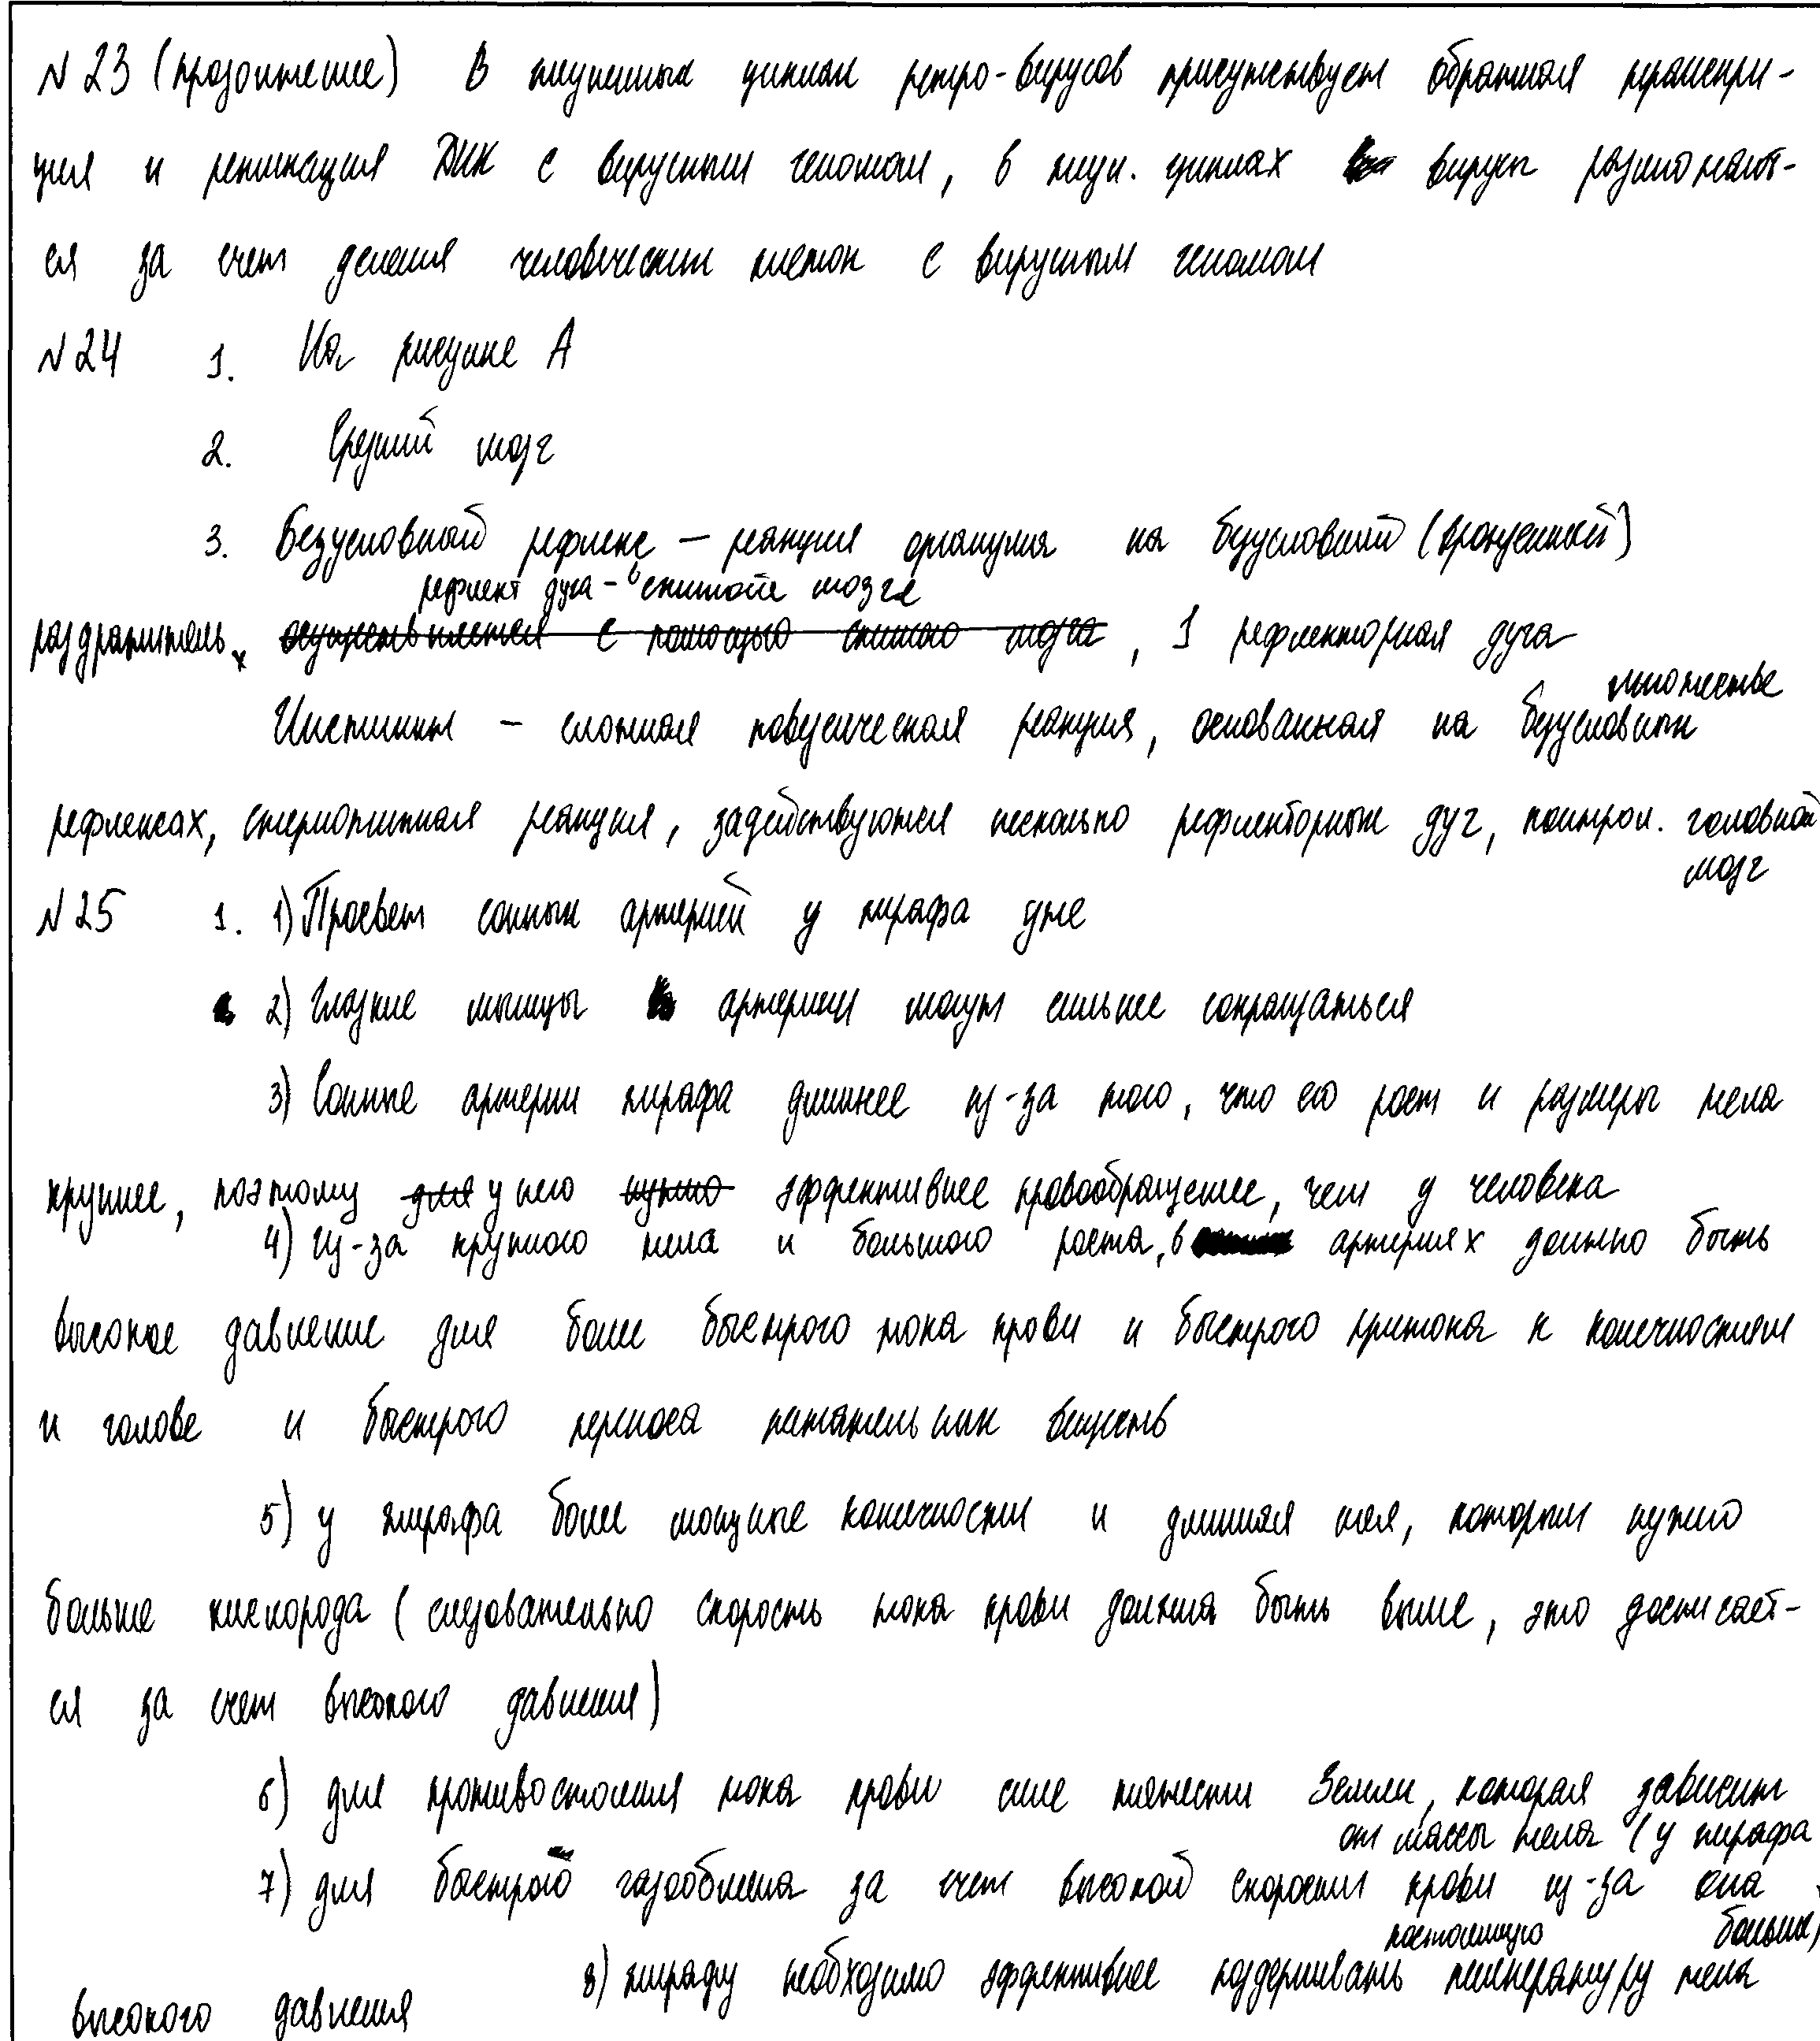 № 23 (продолжение) В жизненных циклах ретро-вирусов присутствует обратная транскрип-
ция и репликация ДНК с вирусным геномом, в жизн. циклах вирусы размножают-
ся за счет деления человеческих клеток с вирусным геномом
№ 24 1. На рисунке А
2. Средний мозг
3. Безусловный рефлекс – реакция организма на безусловный (врожденный)
рефлект дуга - в спинном мозге
раздражитель, осуществляется с помощью спинного мозга, 1 рефлекторная дуга
множестве
Инстинкт – сложная поведенческая реакция, основанная на безусловных
рефлексах, стереотипная реакция, задействуются несколько рефлекторных дуг, контрол. головной
мозг
№ 25 1. 1) Просвет сонных артерий у жирафа уже
2) Гладкие мышцы артерии могут сильнее сокращаться
3) Сонные артерии жирафа длиннее из-за того, что его рост и размеры тела
крупнее, поэтому для у него нужно эффективнее кровообращение, чем у человека
4) из-за крупного тела и большого роста, в артериях должно быть
высокое давление для более быстрого тока крови и быстрого притока к конечностям
и голове и быстрого переноса питательных веществ
5) у жирафа более мощные конечности и длинная шея, которым нужно
больше кислорода (следовательно скорость тока крови должна быть выше, это достигает-
ся за счет высокого давления)
6) для противостояния тока крови силе тяжести Земли, которая зависит
от массы тела (у жирафа
7) для быстрого газообмена за счет высокой скорости крови из-за она
больше)
постоянную
8) жирафу необходимо эффективнее поддерживать температуру тела
высокого давления